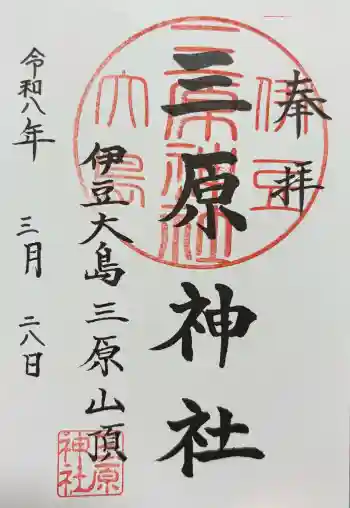 奉拝
三原神社
伊豆大島三原山頂
令和八年 三月 二八日
伊豆
三原神社
大島
三原
神社